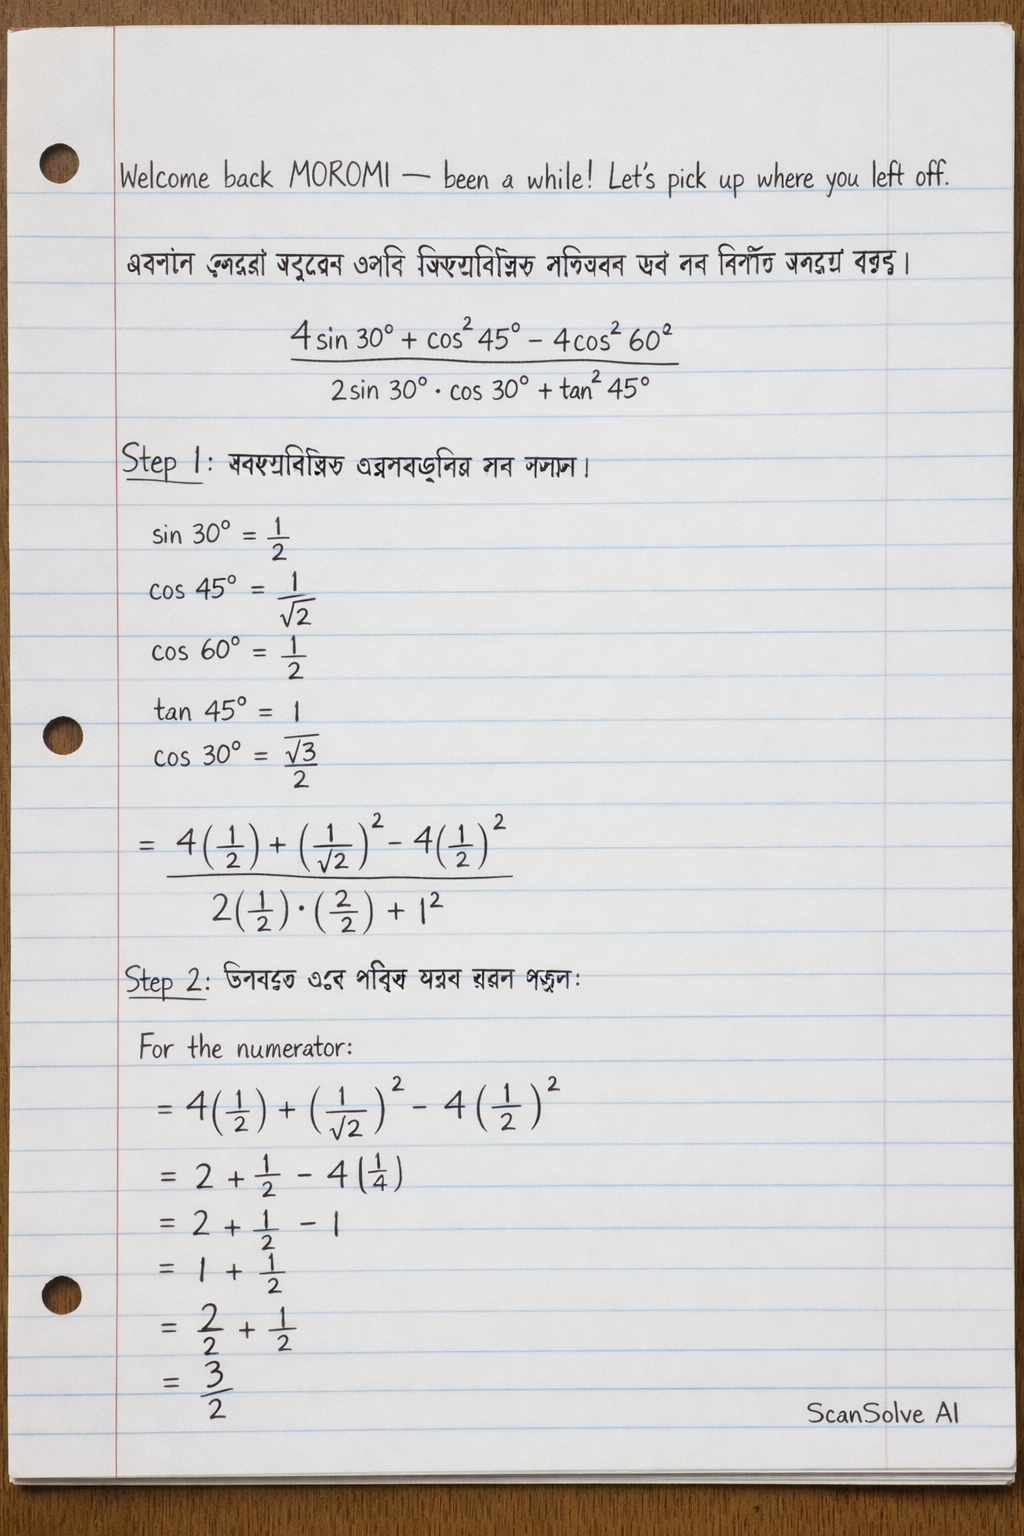 Welcome back MOROMI — been a while! Let's pick up where you left off.
4 sin 30° + cos² 45° − 4cos² 60°
2 sin 30° · cos 30° + tan² 45°
Step 1:
sin 30° = 1/2
cos 45° = 1/√2
cos 60° = 1/2
tan 45° = 1
cos 30° = √3/2
= 4(1/2) + (1/√2)² − 4(1/2)²
2(1/2) · (2/2) + 1²
Step 2:
For the numerator:
= 4(1/2) + (1/√2)² − 4(1/2)²
= 2 + 1/2 − 4(1/4)
= 2 + 1/2 − 1
= 1 + 1/2
= 2/2 + 1/2
= 3/2
ScanSolve AI